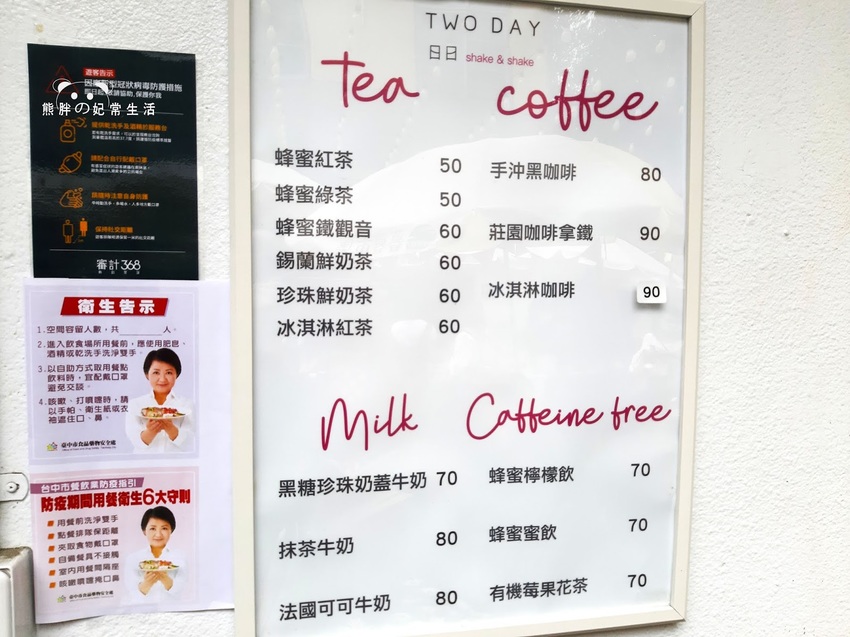 TWO DAY
日日 shake & shake
tea
蜂蜜紅茶 50
蜂蜜綠茶 50
蜂蜜鐵觀音 60
錫蘭鮮奶茶 60
珍珠鮮奶茶 60
冰淇淋紅茶 60
coffee
手沖黑咖啡 80
莊園咖啡拿鐵 90
冰淇淋咖啡 90
Milk
黑糖珍珠奶蓋牛奶 70
抹茶牛奶 80
法國可可牛奶 80
Caffeine free
蜂蜜檸檬飲 70
蜂蜜蜜飲 70
有機莓果花茶 70
遊客告示
冠狀病毒防護措施
熊胖の妃常生活
保持社交距離
審計368
衛生告示
1.空間容留人數，共＿＿＿人。
2.進入飲食場所用餐前，應使用肥皂、
酒精或乾洗手洗淨雙手。
3.以自助方式取用餐點
飲料時，宜配戴口罩
避免交談。
4.咳嗽、打噴嚏時，請
以手帕、衛生紙或衣
袖遮住口、鼻。
臺中市食品藥物安全處
台中市餐飲業防疫指引
防疫期間用餐衛生6大守則
用餐前洗淨雙手
點餐排隊保距離
夾取食物戴口罩
自備餐具不接觸
室內用餐間隔座
咳嗽噴嚏掩口鼻
臺中市食品藥物安全處